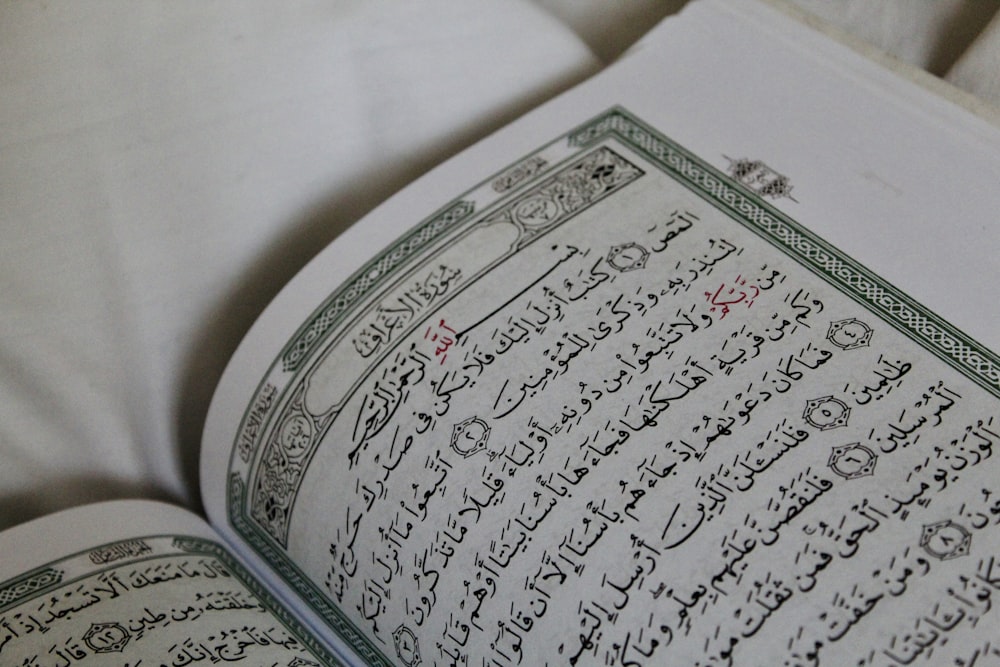 سُورَةُ الْأَعْرَافِ
بِسْمِ اللَّهِ الرَّحْمَٰنِ الرَّحِيمِ
الٓمٓصٓ ١ كِتَٰبٌ أُنزِلَ إِلَيْكَ فَلَا يَكُن فِي صَدْرِكَ حَرَجٌ مِّنْهُ
لِتُنذِرَ بِهِۦ وَذِكْرَىٰ لِلْمُؤْمِنِينَ ٢ ٱتَّبِعُوا۟ مَآ أُنزِلَ إِلَيْكُم
مِّن رَّبِّكُمْ وَلَا تَتَّبِعُوا۟ مِن دُونِهِۦٓ أَوْلِيَآءَ قَلِيلًا مَّا تَذَكَّرُونَ ٣
وَكَم مِّن قَرْيَةٍ أَهْلَكْنَٰهَا فَجَآءَهَا بَأْسُنَا بَيَٰتًا أَوْ هُمْ
٤ فَمَا كَانَ دَعْوَىٰهُمْ إِذْ جَآءَهُم بَأْسُنَآ إِلَّآ أَن قَالُوٓا۟
ظَٰلِمِينَ ٥ فَلَنَسْـَٔلَنَّ ٱلَّذِينَ أُرْسِلَ إِلَيْهِمْ
ٱلْمُرْسَلِينَ ٦ فَلَنَقُصَّنَّ عَلَيْهِم بِعِلْمٍ وَمَا
وَٱلْوَزْنُ يَوْمَئِذٍ ٱلْحَقُّ فَمَن ثَقُلَتْ
٨ وَمَنْ خَفَّتْ
كَانُوا۟ بِـَٔايَٰتِنَا
قَالَ مَا مَنَعَكَ أَلَّا تَسْجُدَ إِذْ
وَخَلَقْتَهُۥ مِن طِينٍ ١٢ قَالَ
فِيهَا فَٱخْرُجْ إِنَّكَ